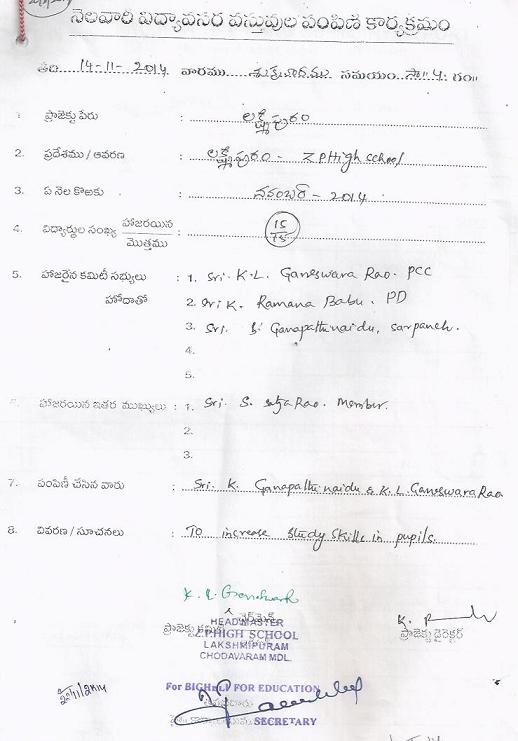 నెలవారి విద్యావసర వస్తువుల పంపిణి కార్యక్రమం
తేది 14-11-2014 వారము శుక్రవారము సమయం సా॥ 4: గం॥
1. ప్రాజెక్టు పేరు : లక్ష్మీపురం
2. ప్రదేశము / ఆవరణ : లక్ష్మీపురం - ZP High school
3. ఏ నెల కొఱకు : నవంబర్ - 2014
4. విద్యార్థుల సంఖ్య హాజరయిన / మొత్తము : 15 / 15
5. హాజరైన కమిటీ సభ్యులు : 1. Sri. K.L. Ganeswara Rao. PCC
హోదాతో 2. Sri K. Ramana Babu. PD
3. Sri. Ganapathinaidu, sarpanch.
4.
5.
6. హాజరయిన ఇతర ముఖ్యులు : 1. Sri. S. Rao. Member.
2.
3.
7. పంపిణీ చేసిన వారు : Sri. K. Ganapathinaidu & K.L. Ganeswara Rao
8. వివరణ / సూచనలు : To increase study skills in pupils.
ప్రాజెక్టు కమిటీ చైర్మన్ ప్రాజెక్టు డైరెక్టర్
HEADMASTER
Z.P.HIGH SCHOOL
LAKSHMIPURAM
CHODAVARAM MDL.
For BIGHELP FOR EDUCATION
SECRETARY